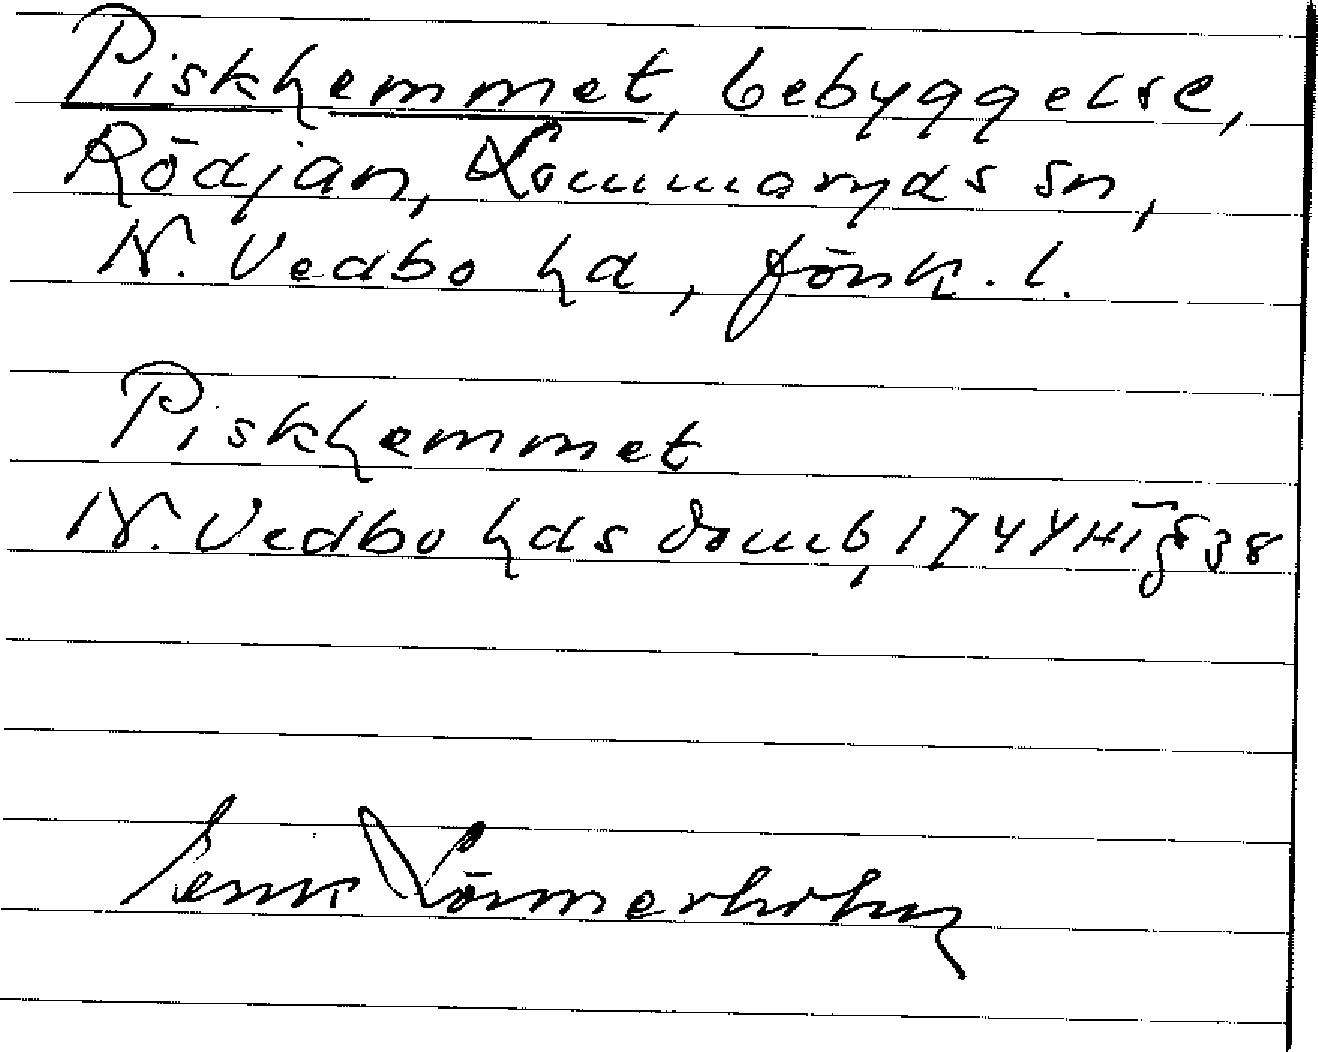 Piskhemmet, bebyggelse,
Rödjan, Lommaryds sn,
N. Vedbo hd, Jönk. l.
Piskhemmet
N. Vedbo hds domb, 1744 HT § 38
Lönnerholm